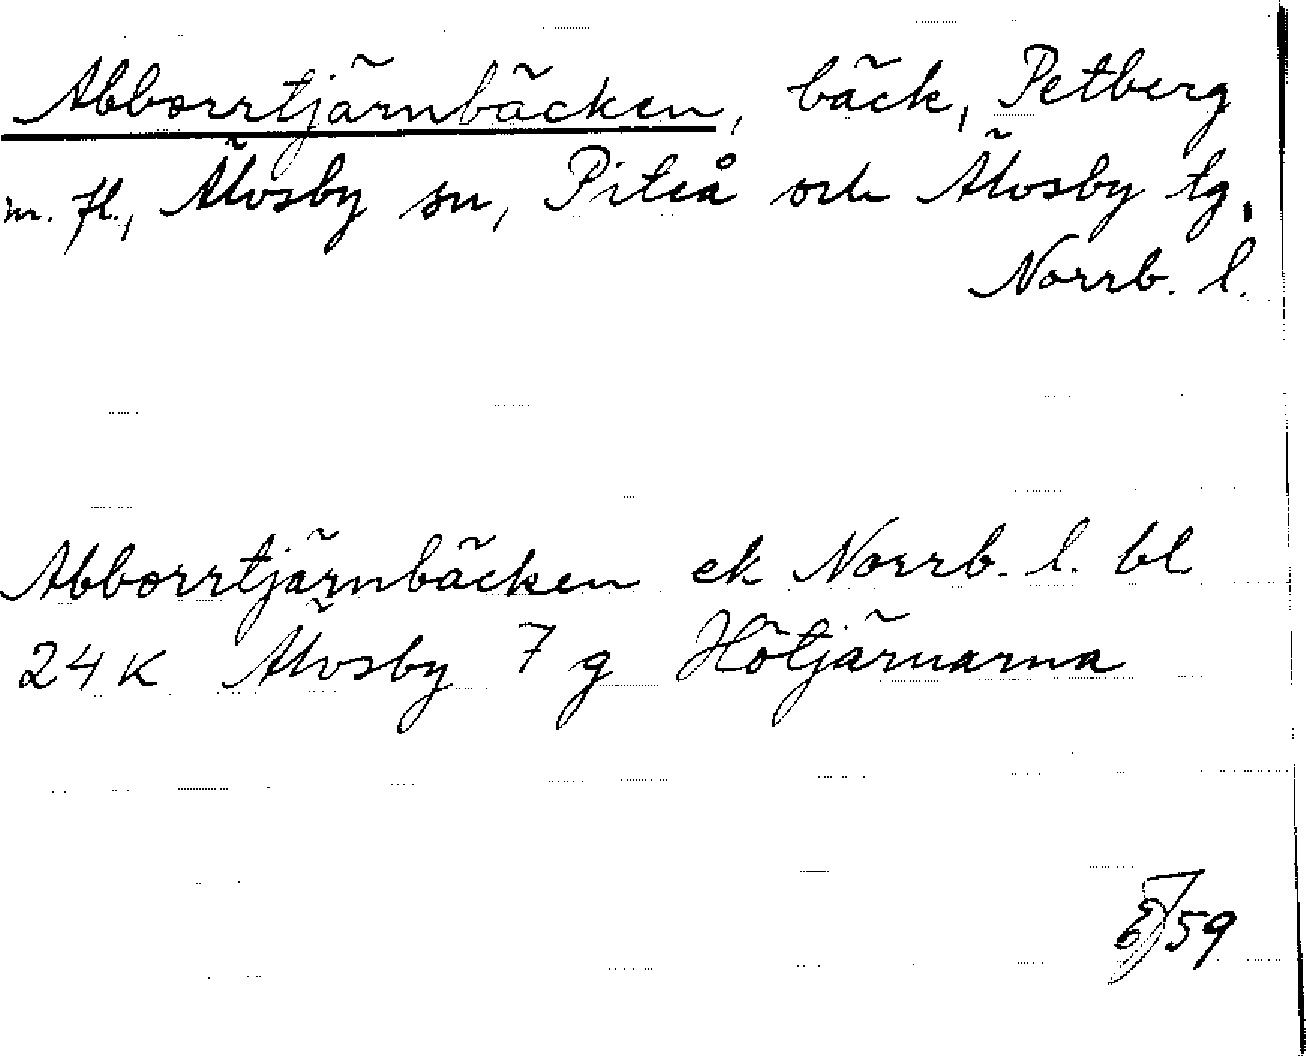 Abborrtjärnbäcken, bäck, Petberg
m. fl., Älvsby sn, Piteå och Älvsby tg,
Norrb. l.
Abborrtjärnbäcken ek Norrb. l. bl
24 K Älvsby 7 g Hötjärnarna
59